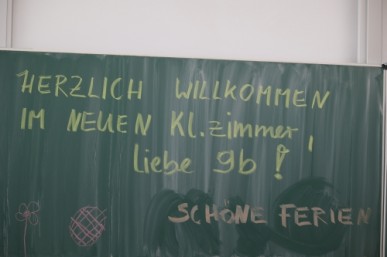 HERZLICH WILLKOMMEN
IM NEUEN Kl.zimmer,
liebe 9b!
SCHÖNE FERIEN